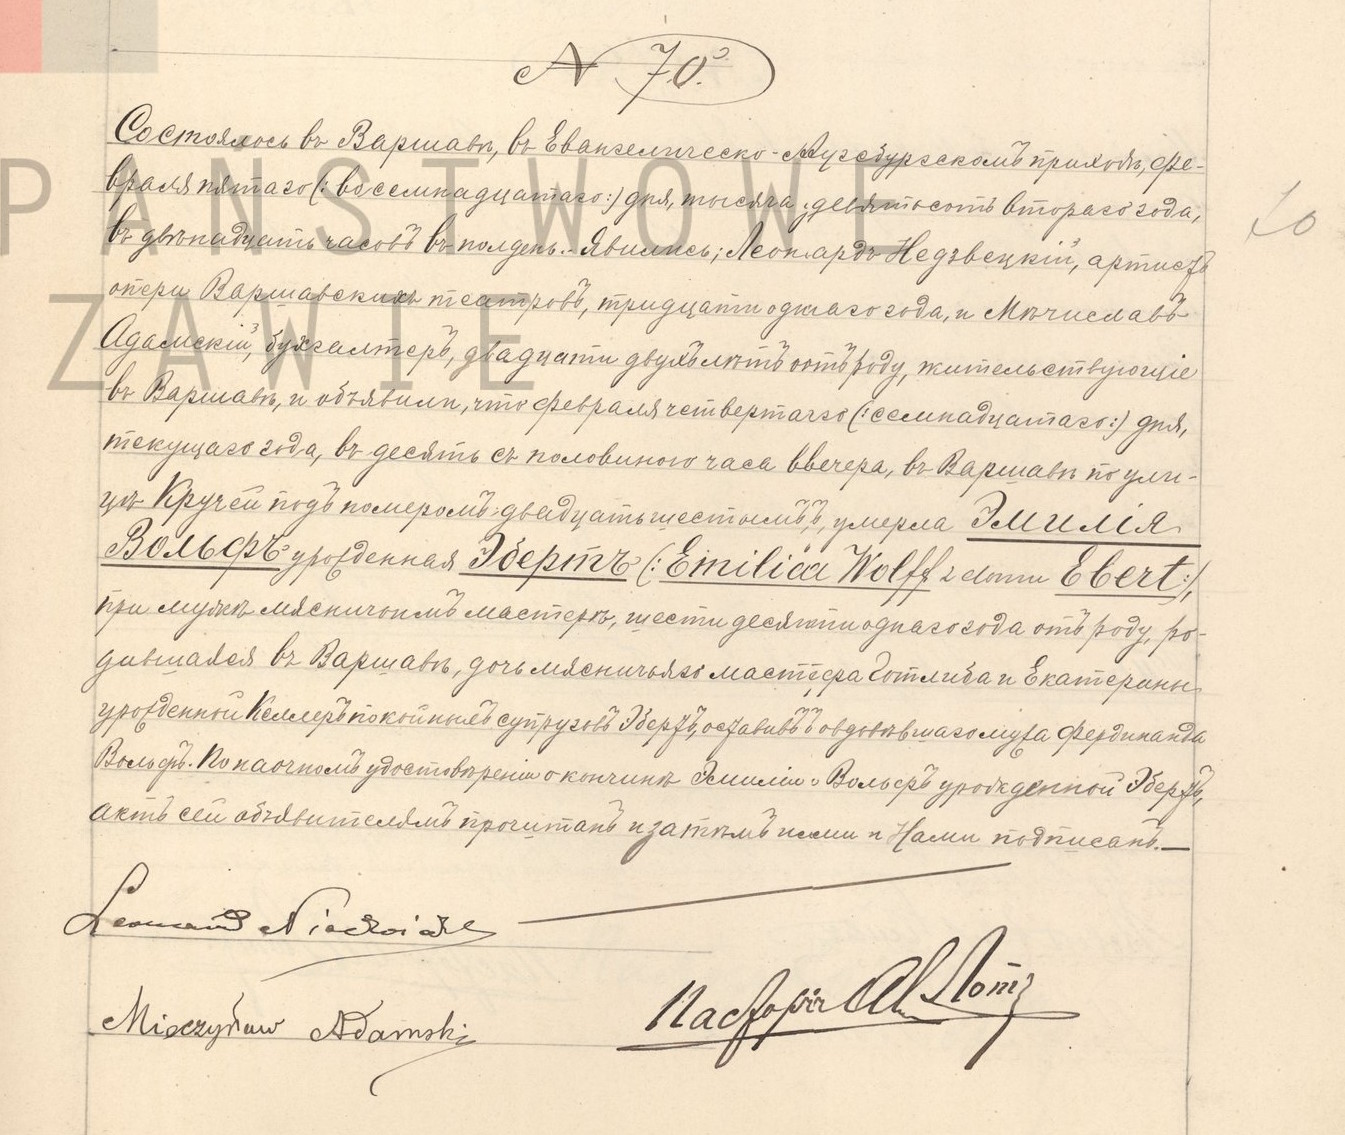 № 70.
Состоялось въ Варшавѣ, въ Евангелическо-Аугсбургскомъ приходѣ, фе-
враля пятаго (: восемнадцатаго :) дня, тысяча девятьсотъ втораго года,
въ двѣнадцать часовъ въ полдень. Явились; Леонардъ Недзвецкій, артистъ
оперы Варшавскихъ театровъ, тридцати одного года, и Мѣчиславъ
Адамскій, бухгалтеръ, двадцати двухъ лѣтъ отъ роду, жительствующіе
въ Варшавѣ, и объявили, что февраля четвертаго (: семнадцатаго :) дня,
текущаго года, въ десять съ половиною часа ввечера, въ Варшавѣ по ули-
цѣ Кручей подъ номеромъ двадцать шестымъ, умерла Эмилія
Вольфъ урожденная Эбертъ (: Emilia Wolff z domu Ebert :),
при мужѣ мясничномъ мастерѣ, шестидесяти одного года отъ роду, ро-
дившаяся въ Варшавѣ, дочь мясничьяго мастера Готлиба и Екатерины
урожденной Келлеръ покойныхъ супруговъ Эбертъ, оставивъ овдовѣвшаго мужа Фердинанда
Вольфъ. По наочномъ удостовѣреніи о кончинѣ Эмиліи Вольфъ урожденной Эбертъ,
актъ сей объявителямъ прочитанъ и затѣмъ ими и Нами подписанъ.
Leonard Niedzwiecki
Mieczysław Adamski
Пасторъ
PAŃSTWOWE
ZAWIE
70